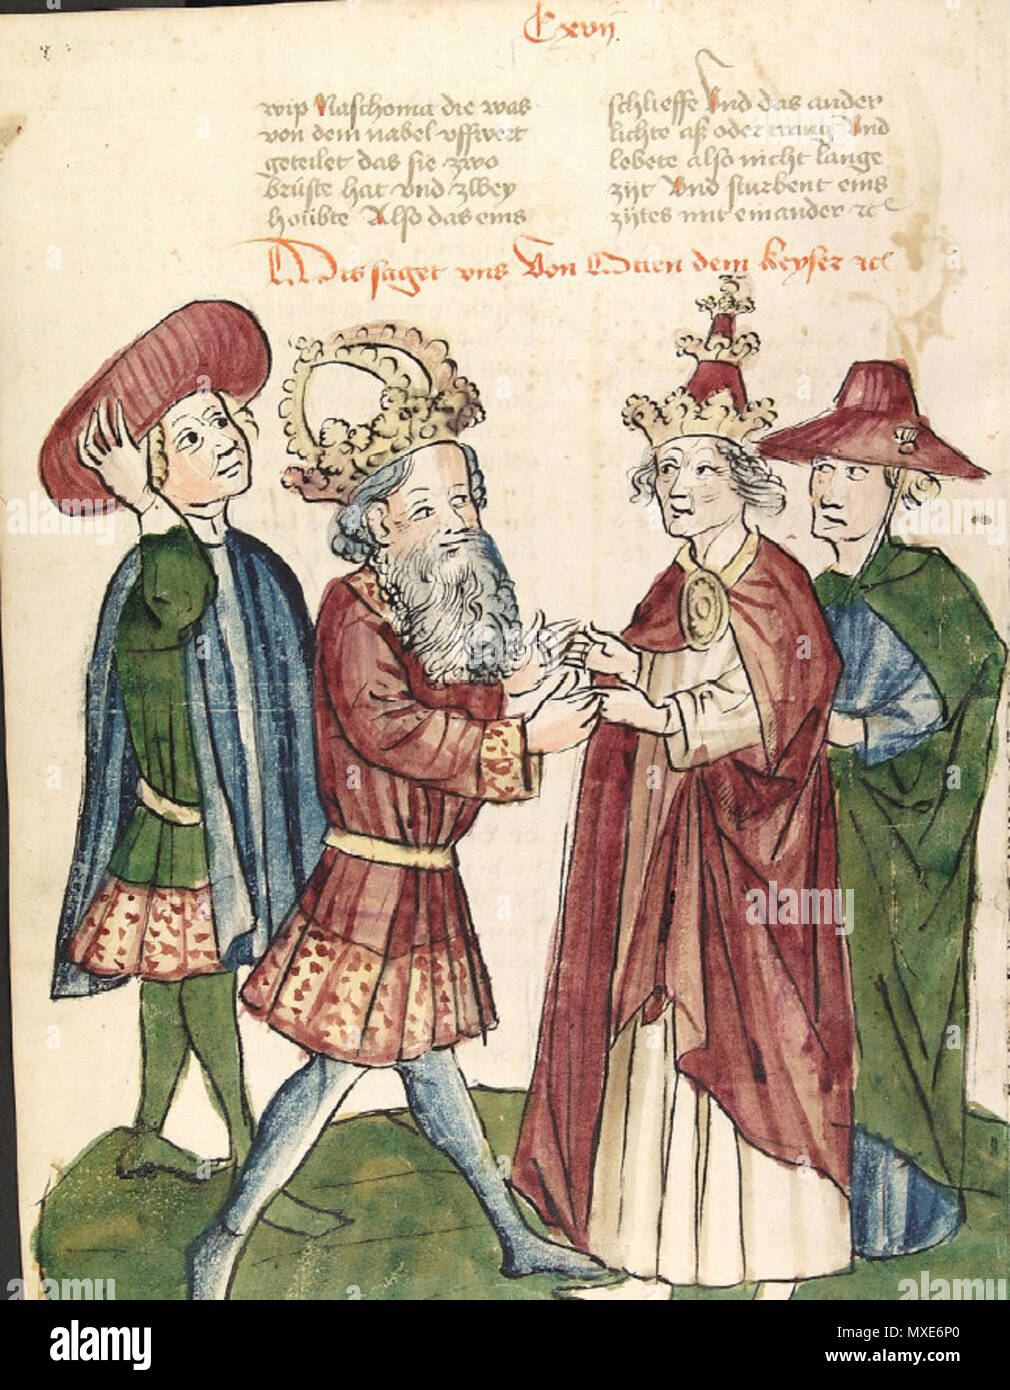 Cxvij.
wip Naschoma die was
von dem nabel vffwert
geteilet das sie zwo
brüste hat vnd zwey
houbte Also das eins
schlieffe Vnd das ander
lichte aß oder Vnd
lebete also nicht lange
zijt Vnd sturbent eins
zijtes mit einander ꝛc
Dis saget vns Von Otten dem keyser ꝛc
alamy
www.alamy.com
Image ID: MXE6P0